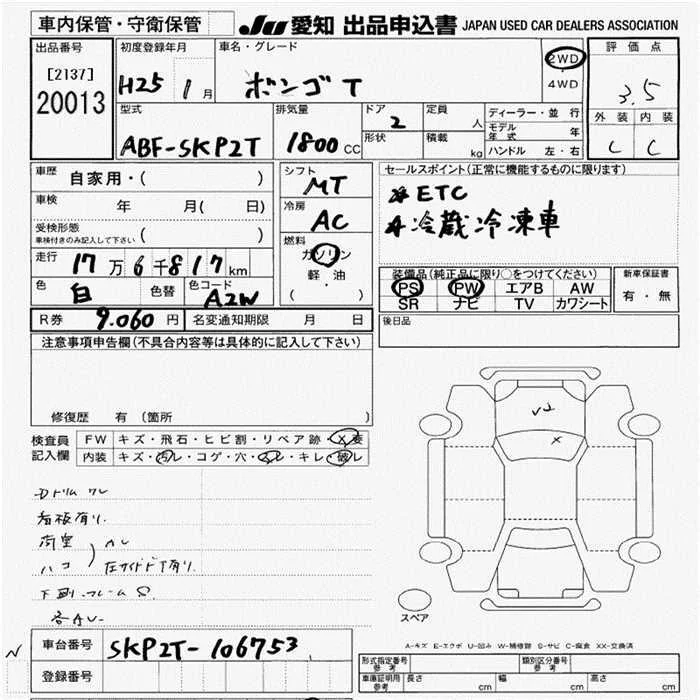 車内保管・守衛保管
JU 愛知 出品申込書 JAPAN USED CAR DEALERS ASSOCIATION
出品番号
[2137]
20013
初度登録年月
H25 1月
車名・グレード
ボンゴ T
2WD
・
4WD
評価点
3.5
外装 内装
C C
型式
ABF-SKP2T
排気量
1800 CC
ドア
2
形状
定員
人
積載
kg
ディーラー・並行
モデル年式 年
ハンドル 左・右
車歴 自家用・( )
車検 年 月( 日)
受検形態
車検付きのみ記入して下さい ( )
走行 17万6千817km
色 白 色替 色コード A2W
シフト
MT
冷房
AC
燃料
ガソリン
軽・油
( )
セールスポイント(正常に機能するものに限ります)
※ETC
冷蔵冷凍車
装備品(純正品に限り○をつけてください)
PS PW エアB AW
SR ナビ TV カワシート
新車保証書
有・無
R券 9.060円 名変通知期限 月 日
後日品
注意事項申告欄(不具合内容等は具体的に記入して下さい)
修復歴 有(箇所 )
検査員記入欄
FW キズ・飛石・ヒビ割・リペア跡・X要
内装 キズ・汚レ・コゲ・穴・スレ・キレ・破レ
看板有り
ハコ
下廻リフレームS
スペア
A-キズ E-エクボ U-凹み W-補修跡 S-サビ C-腐食 XX-交換済
車台番号 SKP2T-106753
登録番号
N
型式指定番号
参考
類別区分番号
参考
車庫証明用
参考
長さ cm 幅 cm 高さ cm